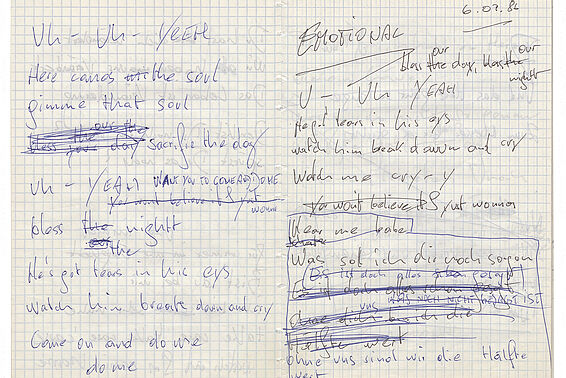 Uh - Uh - YEAH
Here comes the soul
gimme that soul
sacrifie the day
Uh - YEAH WANT YOU TO COME AND DO ME
You wont believe it &
woman
bless the night
the
He's got tears in his eys
Watch him break down and cry
Come on and do me
do me
6.02.86
EMOTIONAL
our our
bless the day, bless the
night
U - Uh YEAH
He got tears in his eys
watch him break down and cry
Watch me cry-y
You wont believe it & woman
Hear me babe
Was sol ich dir noch sagen
Es ist doch alles gesagt
uns WAS NOCH NICHT GESAGT IST
ohne dich bin ich die
Hälfte wert
ohne uns sind wir die Hälfte
wert